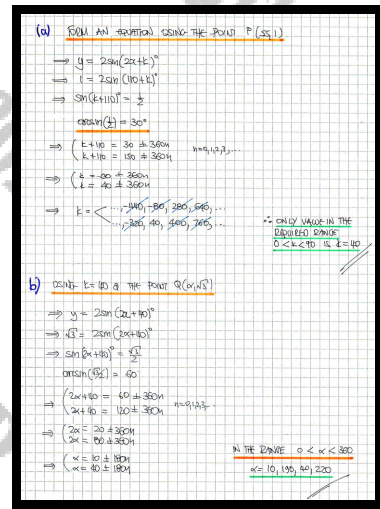 (a) FORM AN EQUATION USING THE POINT P(55,1)
⇒ y = 2sin(2x+k)°
⇒ 1 = 2sin(110+k)°
⇒ sin(k+110)° = 1/2
arcsin(1/2) = 30°
⇒ ( k+110 = 30 ± 360n
( k+110 = 150 ± 360n n=0,1,2,3,...
⇒ ( k = -80 ± 360n
( k = 40 ± 360n
⇒ k = < ..., -440, -80, 280, 640, ...
..., -320, 40, 400, 760, ...
∴ ONLY VALUE IN THE
REQUIRED RANGE
0 < k < 90 IS k=40
b) USING k=40 & THE POINT Q(α,√3)
⇒ y = 2sin(2x+40)°
⇒ √3 = 2sin(2α+40)°
⇒ sin(2α+40)° = √3/2
arcsin(√3/2) = 60
⇒ ( 2α+40 = 60 ± 360n
( 2α+40 = 120 ± 360n n=0,1,2,3,...
⇒ ( 2α = 20 ± 360n
( 2α = 80 ± 360n
⇒ ( α = 10 ± 180n
( α = 40 ± 180n
IN THE RANGE 0 < α < 360
α = 10, 190, 40, 220